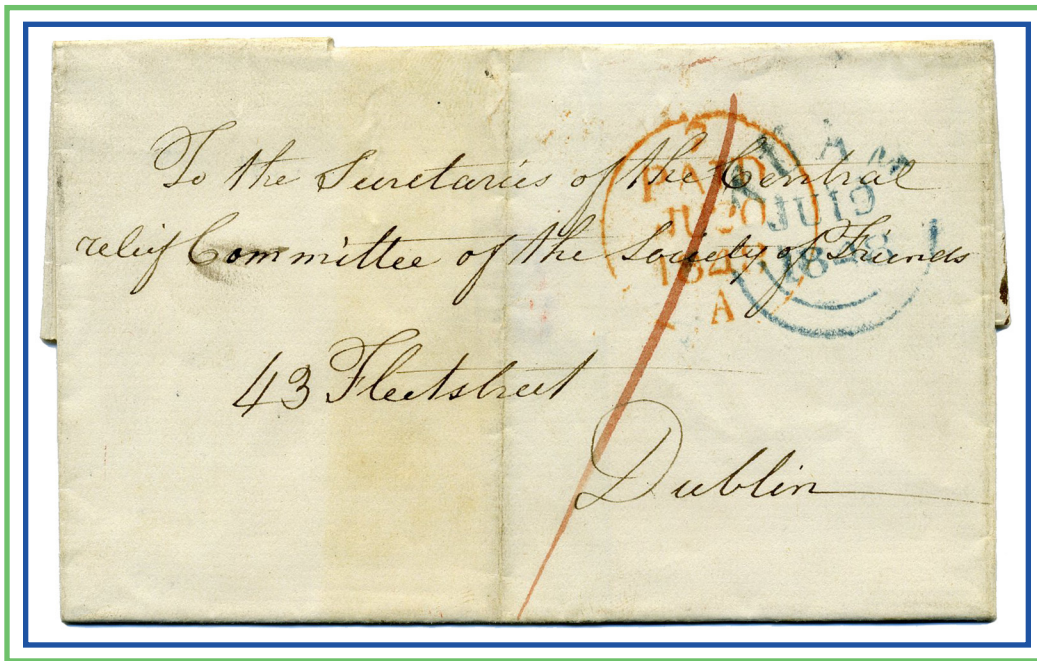 To the Secretaries of the Central
relief Committee of the Society of Friends
43 Fleetstreet
Dublin
2
PAID
JU 20
1848
A
JU 19
1848